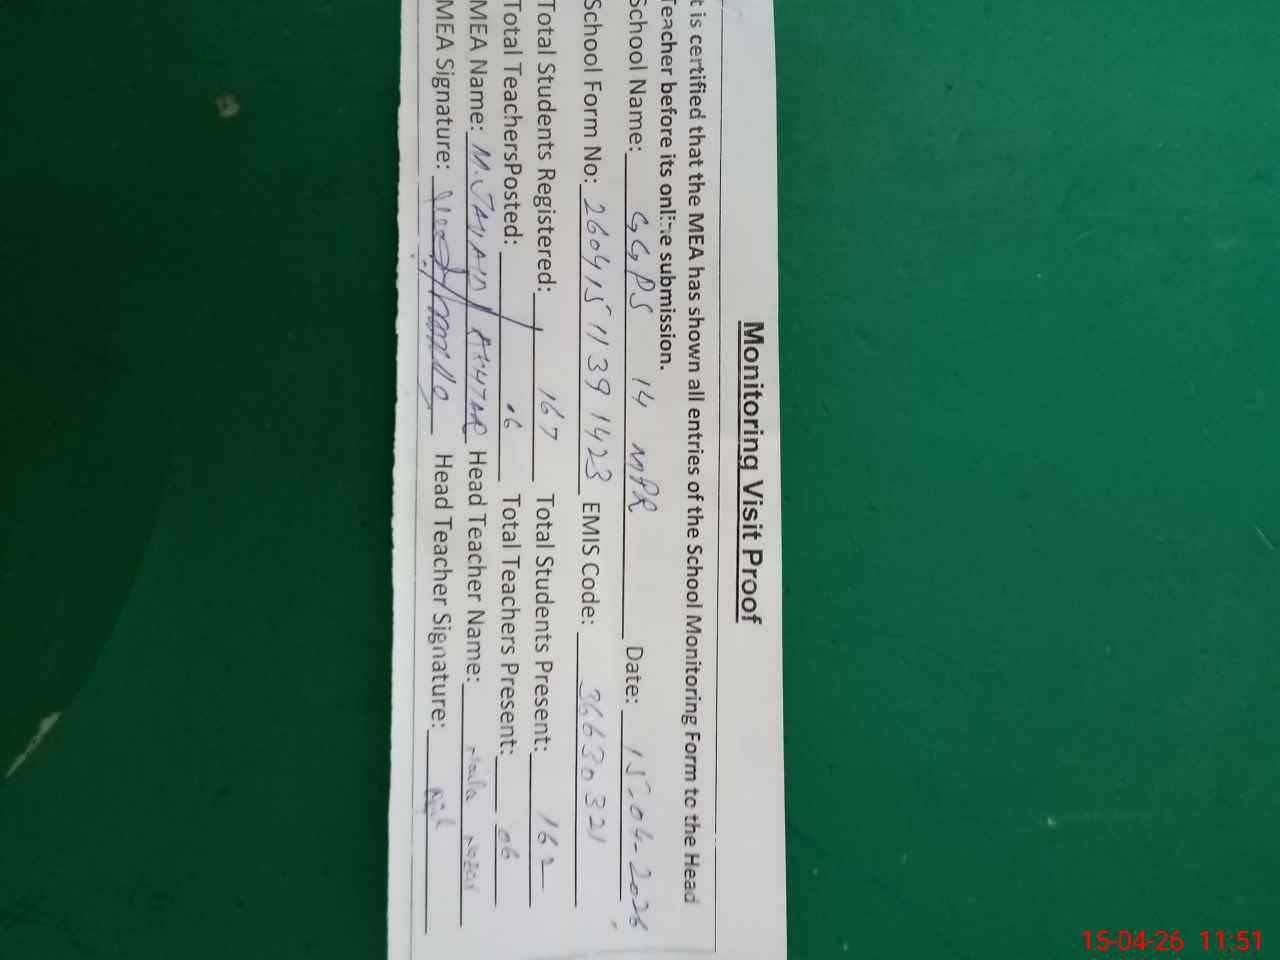 Monitoring Visit Proof
t is certified that the MEA has shown all entries of the School Monitoring Form to the Head
Teacher before its online submission.
School Name: GGPS 14 MPR Date: 15-04-2026
School Form No: 26041511391423 EMIS Code: 36630321
Total Students Registered: 167 Total Students Present: 162
Total TeachersPosted: 06 Total Teachers Present: 06
MEA Name: M. AKHTAR Head Teacher Name:
MEA Signature: Head Teacher Signature:
15-04-26 11:51